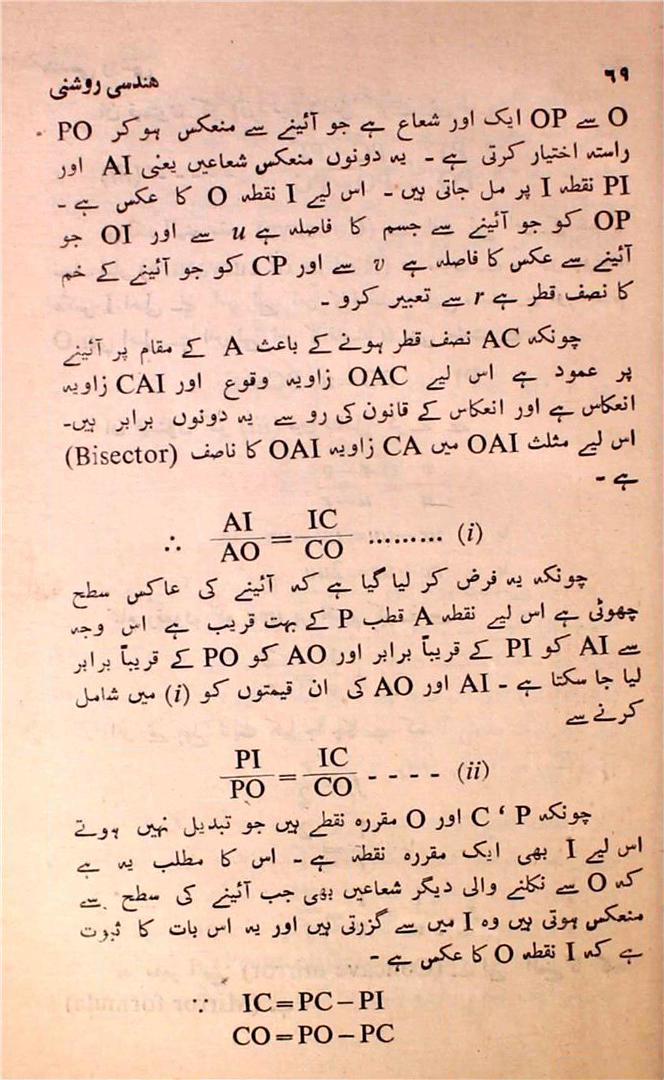 ۶۹ هندسی روشنی
O سے OP ایک اور شعاع ہے جو آئینے سے منعکس ہو کر PO
راستہ اختیار کرتی ہے ۔ یہ دونوں منعکس شعاعیں یعنی AI اور
PI نقطہ I پر مل جاتی ہیں ۔ اس لیے I نقطہ O کا عکس ہے ۔
OP کو جو آئینے سے جسم کا فاصلہ ہے u سے اور OI جو
آئینے سے عکس کا فاصلہ ہے v سے اور CP کو جو آئینے کے خم
کا نصف قطر ہے r سے تعبیر کرو ۔
چونکہ AC نصف قطر ہونے کے باعث A کے مقام پر آئینے
پر عمود ہے اس لیے OAC زاویہ وقوع اور CAI زاویہ
انعکاس ہے اور انعکاس کے قانون کی رو سے یہ دونوں برابر ہیں۔
اس لیے مثلث OAI میں CA زاویہ OAI کا ناصف (Bisector)
ہے ۔
∴ AI/AO = IC/CO ......... (i)
چونکہ یہ فرض کر لیا گیا ہے کہ آئینے کی عاکس سطح
چھوٹی ہے اس لیے نقطہ A قطب P کے بہت قریب ہے اس وجہ
سے AI کو PI کے قریباً برابر اور AO کو PO کے قریباً برابر
لیا جا سکتا ہے ۔ AI اور AO کی ان قیمتوں کو (i) میں شامل
کرنے سے
PI/PO = IC/CO - - - - (ii)
چونکہ P ‘ C اور O مقررہ نقطے ہیں جو تبدیل نہیں ہوتے
اس لیے I بھی ایک مقررہ نقطہ ہے ۔ اس کا مطلب یہ ہے
کہ O سے نکلنے والی دیگر شعاعیں بھی جب آئینے کی سطح سے
منعکس ہوتی ہیں وہ I میں سے گزرتی ہیں اور یہ اس بات کا ثبوت
ہے کہ I نقطہ O کا عکس ہے ۔
∵ IC = PC − PI
CO = PO − PC